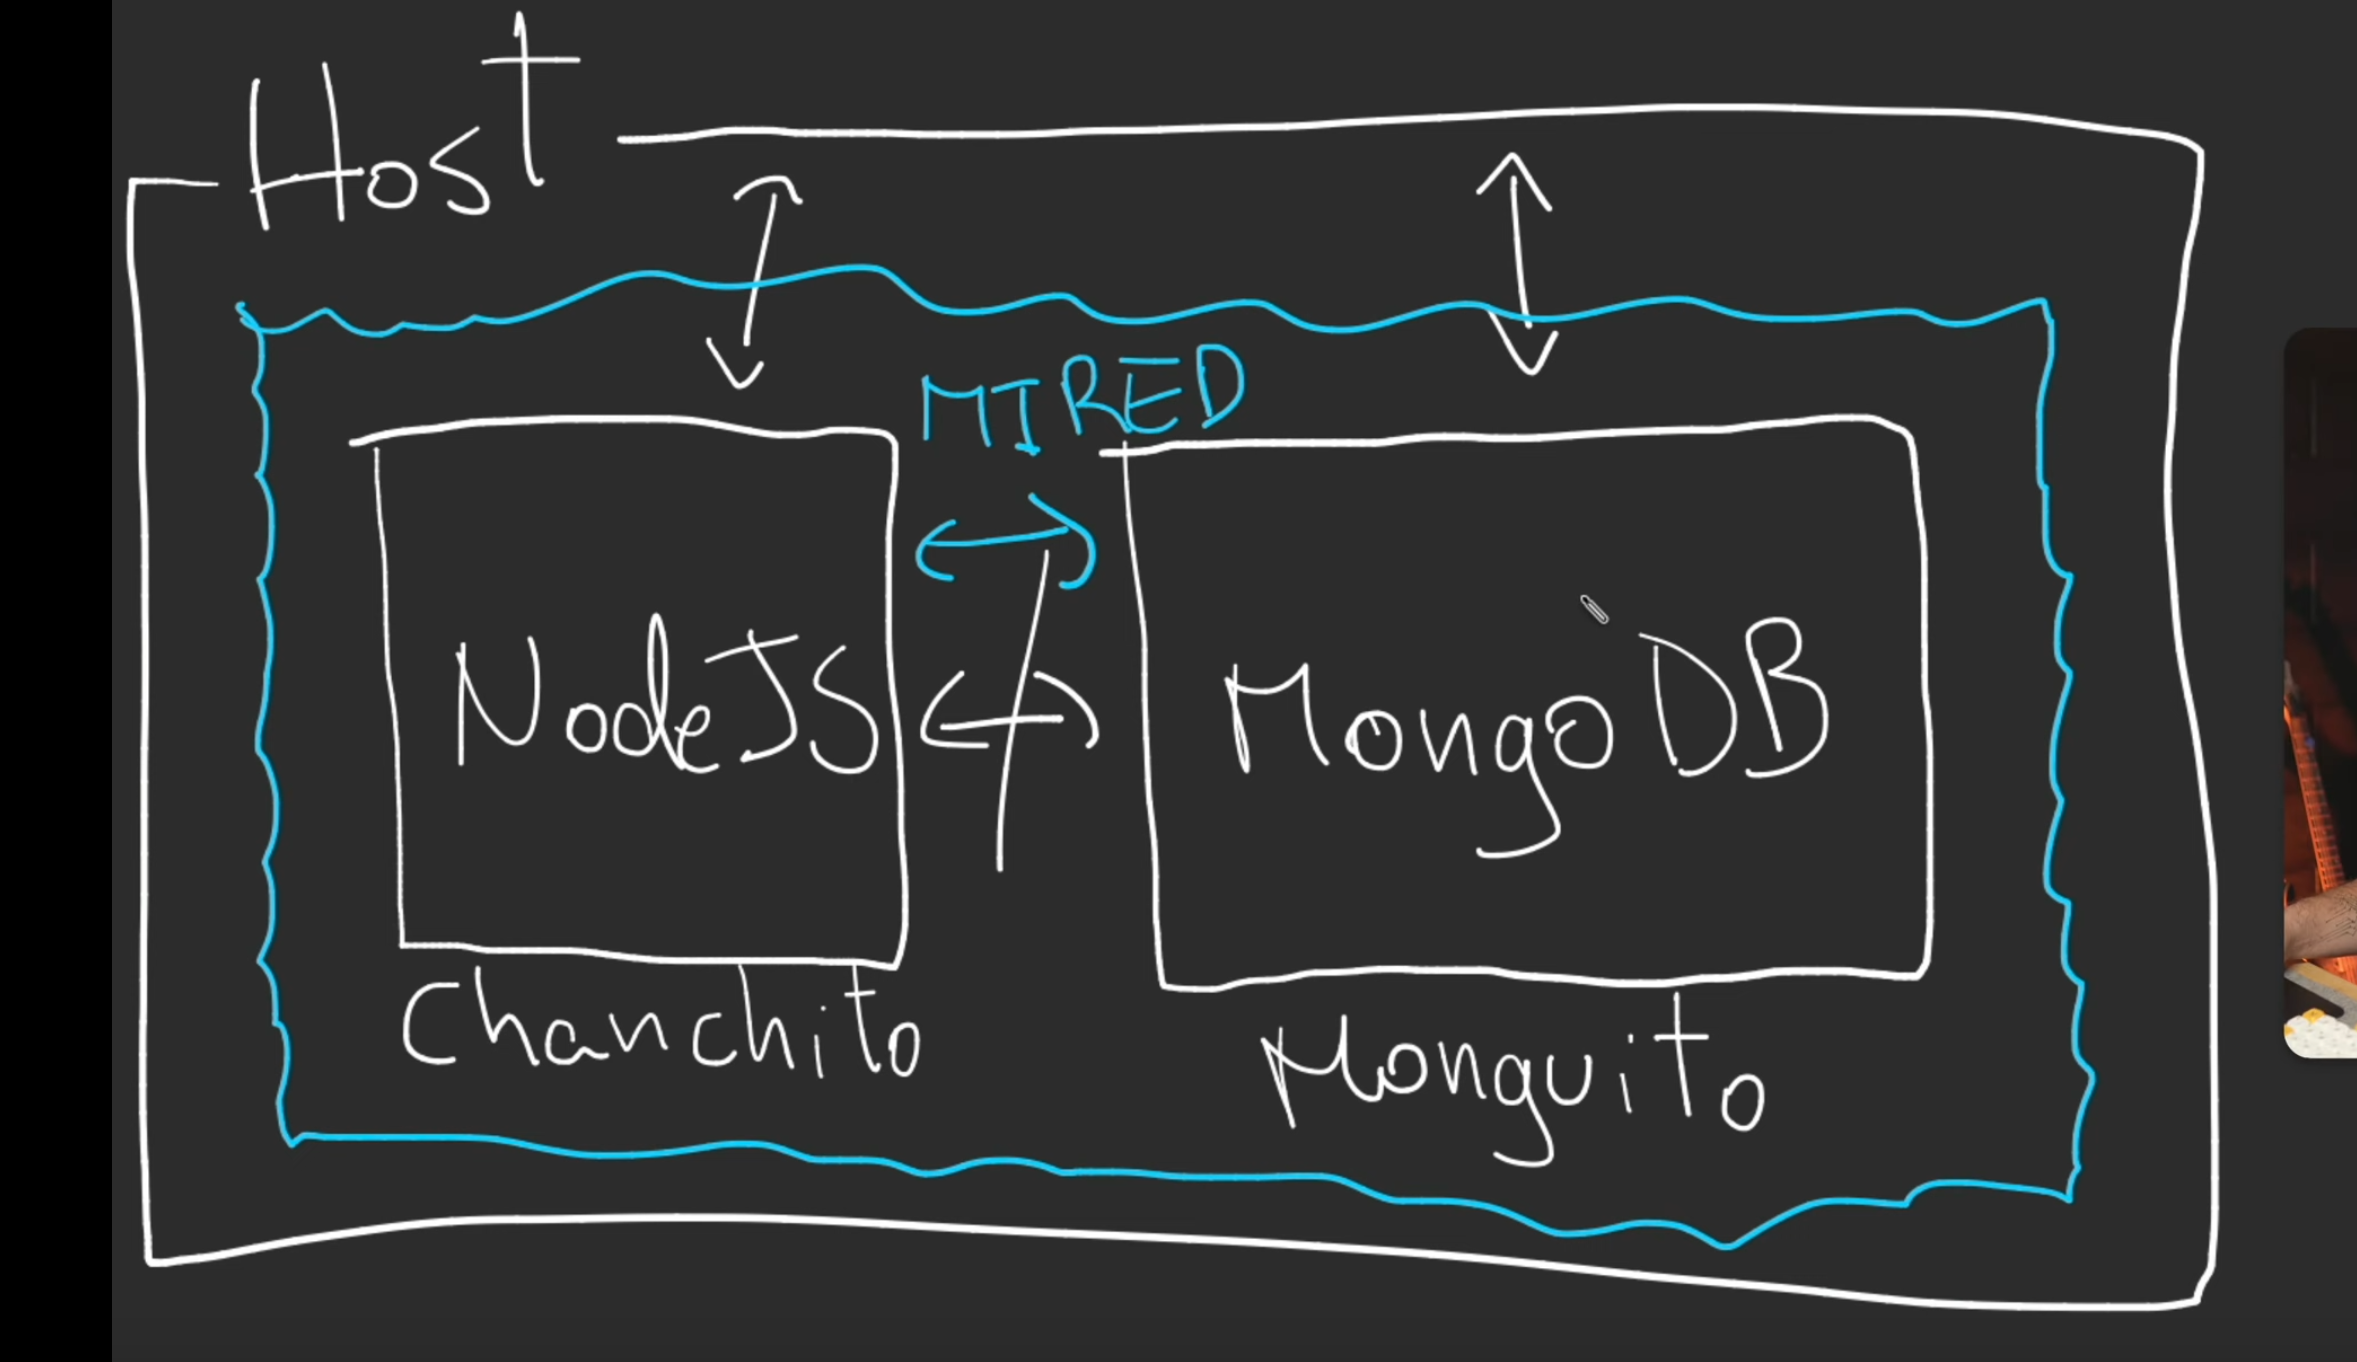 Host
MIRED
NodeJS
MongoDB
Chanchito
Monguito